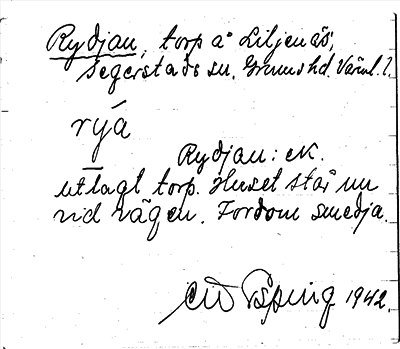 Rydjan, torp å Liljenäs,
Segerstads sn. Grums hd. Värml. l.
rýa
Rydjan: ek.
utlagt torp. Huset står nu
vid vägen. Fordom smedja.
1942.